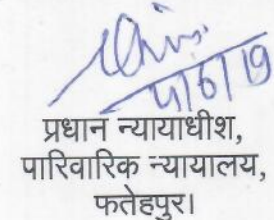 प्रधान न्यायाधीश,
पारिवारिक न्यायालय,
फतेहपुर।